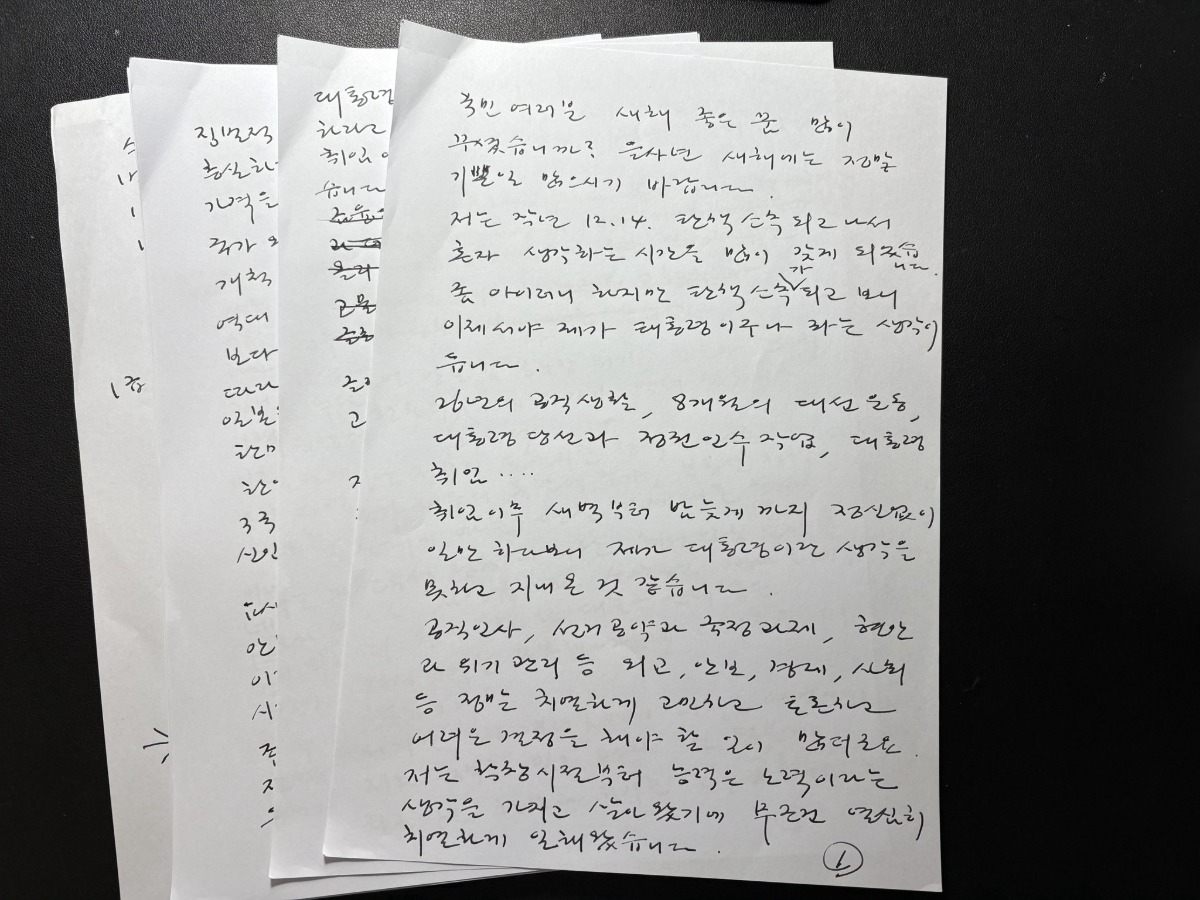 국민 여러분 새해 좋은 꿈 많이
꾸셨습니까? 을사년 새해에는 정말
기쁜일 많으시기 바랍니다.
저는 작년 12.14. 탄핵 소추 되고 나서
혼자 생각하는 시간을 많이 갖게 되었습
니다.
좀 아이러니 하지만 탄핵 소추가 되고 보니
이제서야 제가 대통령이구나 하는 생각이
듭니다.
26년의 공직생활, 8개월의 대선 운동,
대통령 당선과 정권 인수 작업, 대통령
취임 ....
취임이후 새벽부터 밤늦게 까지 정신없이
일만 하다보니 제가 대통령이란 생각을
못하고 지내 온 것 같습니다.
공직인사, 선거 공약과 국정과제, 현안
과 위기 관리 등 외교, 안보, 경제, 사회
등 정책는 치열하게 고민하고 토론하고
어려운 결정을 해야 할 일이 많더군요.
저는 학창시절부터 능력은 노력이라는
생각을 가지고 살아 왔기에 무조건 열심히
치열하게 일해왔습니다.
1
대통령
하라고
취임
습니다
고
징벌적
충실하
가격을
국가
개척
역대
보다
따라
일본
한미
3국